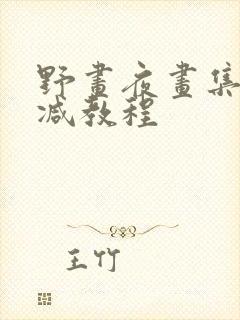 野畫夜畫集
减教程
王竹